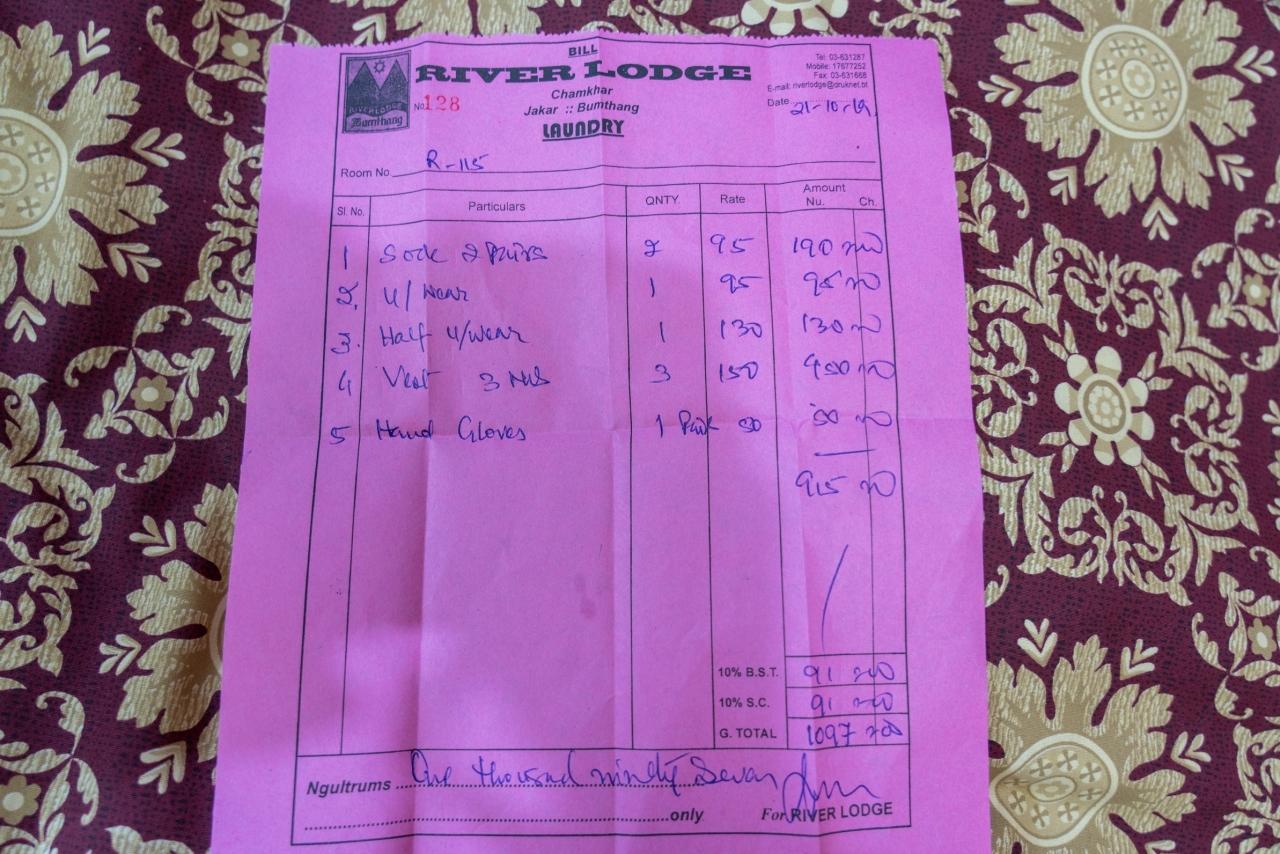 BILL
RIVER LODGE
Tel: 03-631287
Mobile: 17677252
Fax: 03-631668
E-mail: riverlodge@druknet.bt
RIVER LODGE
Bumthang
No. 128
Chamkhar
Jakar :: Bumthang
Date 21-10-19
LAUNDRY
Room No. R-115
Sl. No. Particulars QNTY. Rate Amount Nu. Ch.
1 Sock 2 Pairs 2 95 190
2. U/Wear 1 95 95
3. Half U/wear 1 130 130
4 Vest 3 Nos 3 150 450
5 Hand Gloves 1 Pair 50 50
915
10% B.S.T. 91
10% S.C. 91
G. TOTAL 1097
Ngultrums One thousand ninety Seven
only For RIVER LODGE